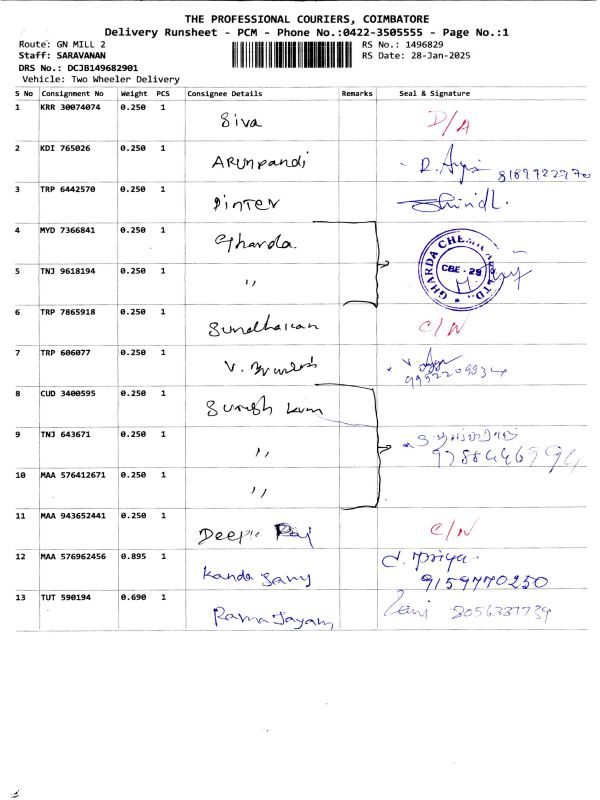 THE PROFESSIONAL COURIERS, COIMBATORE
Delivery Runsheet - PCM - Phone No.:0422-3505555 - Page No.:1
Route: GN MILL 2 RS No.: 1496829
Staff: SARAVANAN RS Date: 28-Jan-2025
DRS No.: DCJB149682901
Vehicle: Two Wheeler Delivery
S No Consignment No Weight PCS Consignee Details Remarks Seal & Signature
1 KRR 30074074 0.250 1 Siva D/A
2 KDI 765026 0.250 1 ARUNPandi 8189922970
3 TRP 6442570 0.250 1 Pinter
4 MYD 7366841 0.250 1 Gharda.
GHARDA CHEMICALS LTD. CBE - 29
5 TNJ 9618194 0.250 1 ,,
6 TRP 7865918 0.250 1 C/N
7 TRP 606077 0.250 1 V. 9952209934
8 CUD 3400595 0.250 1 Suresh kum
9 TNJ 643671 0.250 1 ,,
10 MAA 576412671 0.250 1 ,,
11 MAA 943652441 0.250 1 Deepie Raj C/N
12 MAA 576962456 0.895 1 Kanda Samy C. Priya
9159770250
13 TUT 590194 0.690 1 Rama Jayam 8056337739